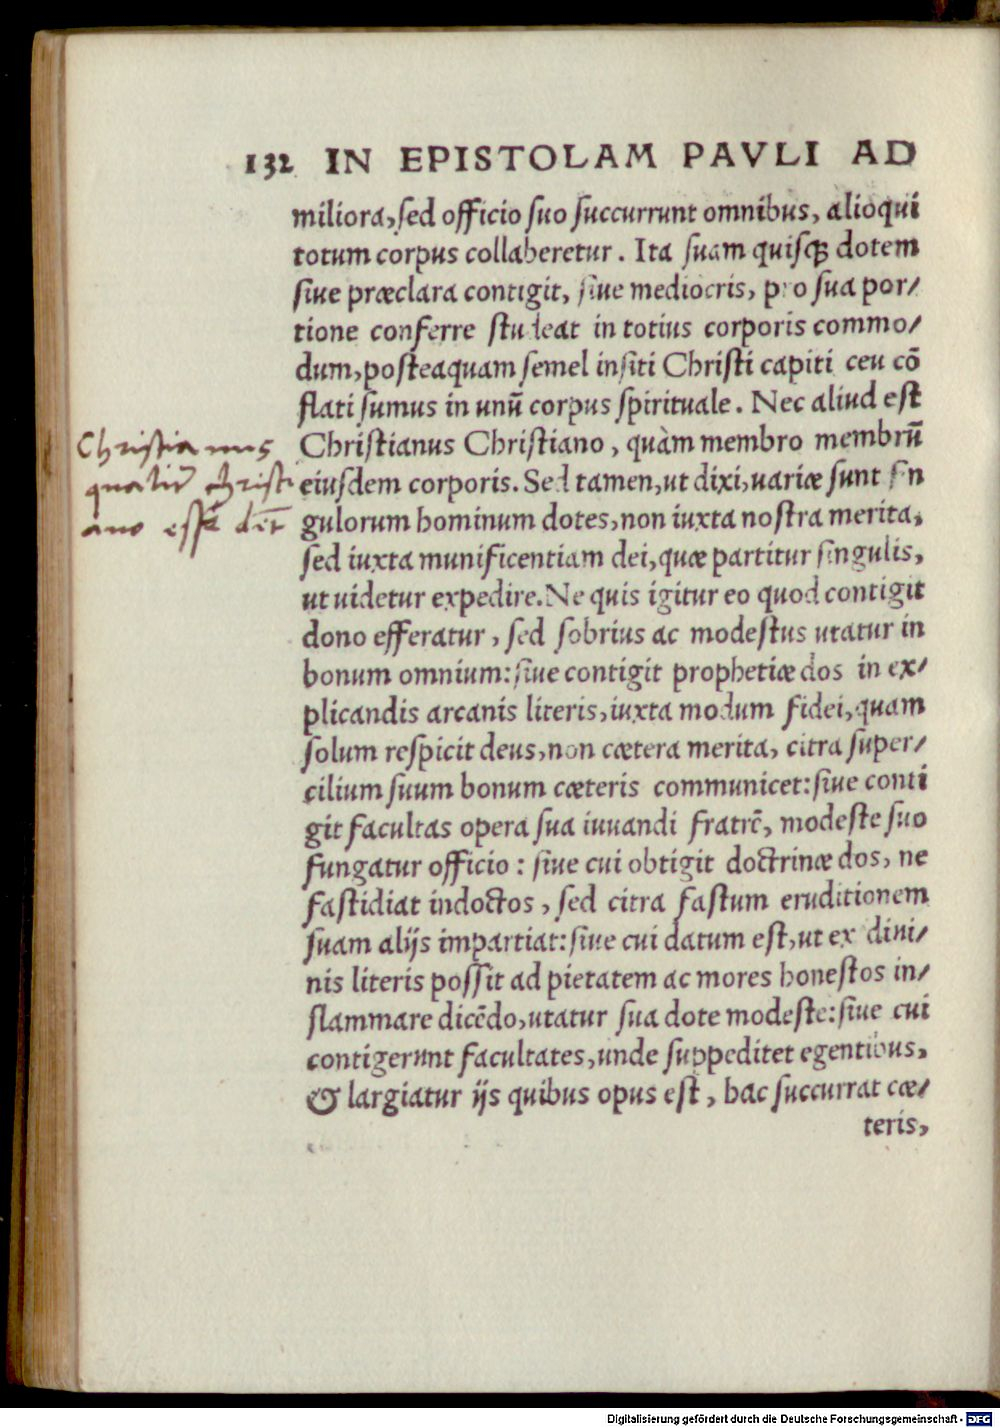 132 IN EPISTOLAM PAVLI AD
miliora, ſed officio ſuo ſuccurrunt omnibus, alioqui
totum corpus collaberetur. Ita ſuam quiſqꝫ dotem
ſiue præclara contigit, ſiue mediocris, pro ſua por/
tione conferre ſtudeat in totius corporis commo/
dum, poſteaquam ſemel inſiti Chriſti capiti ceu cō
flati ſumus in unū corpus ſpirituale. Nec aliud eſt
Chriſtianus Chriſtiano, quàm membro membrū
eiuſdem corporis. Sed tamen, ut dixi, uariæ ſunt ſin
gulorum hominum dotes, non iuxta noſtra merita,
ſed iuxta munificentiam dei, quæ partitur ſingulis,
ut uidetur expedire. Ne quis igitur eo quod contigit
dono efferatur, ſed ſobrius ac modeſtus utatur in
bonum omnium: ſiue contigit prophetiæ dos in ex/
plicandis arcanis literis, iuxta modum fidei, quam
ſolum reſpicit deus, non cætera merita, citra ſuper/
cilium ſuum bonum cæteris communicet: ſiue conti
git facultas opera ſua iuuandi fratrē, modeſte ſuo
fungatur officio: ſiue cui obtigit doctrinæ dos, ne
faſtidiat indoctos, ſed citra faſtum eruditionem
ſuam alijs impartiat: ſiue cui datum eſt, ut ex diui/
nis literis poſſit ad pietatem ac mores honeſtos in/
flammare dicēdo, utatur ſua dote modeſte: ſiue cui
contigerunt facultates, unde ſuppeditet egentibus,
& largiatur ijs quibus opus eſt, hac ſuccurrat cæ/
teris,
Chriſtianus
chriſti
ano
Digitalisierung gefördert durch die Deutsche Forschungsgemeinschaft - DFG